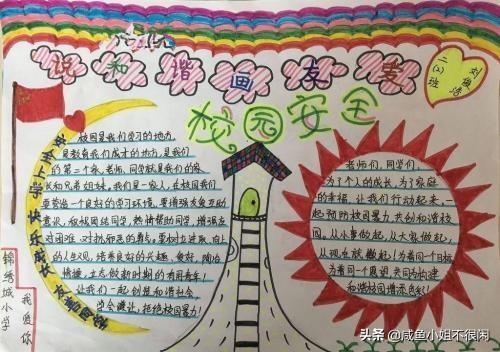 说和谐画友善
二(2)班
刘俊浩
校园安全
安全上学 快乐成长
校园是我们学习的地方,
是教育我们成才的地方,是我们
的第二个家。老师、同学就是我们的家
长和兄弟姐妹,我们是一家人,在校园我们
要营造一个良好的学习环境,要增强友爱互助
意识,和校园结同学,热情帮助同学,增强应
对困难、对抗邪恶的勇气,要树立进取、向上
的人生观,培养良好的兴趣、爱好,陶冶
情操,立志做新时期的有用青年!
让我们一起创建和谐社会,
学会谦让,拒绝校园暴力!
老师们,同学们,
为了个人的成长,为了家庭
的幸福,让我们行动起来,一
起预防校园暴力,共创和谐校
园,从小事做起,从大家做起,
从现在就做起!为着同一个目标
为着同一个愿望,共同为构建
和谐校园增添色彩!
锦绣城小学
我爱你
头条 @咸鱼小姐不很闲